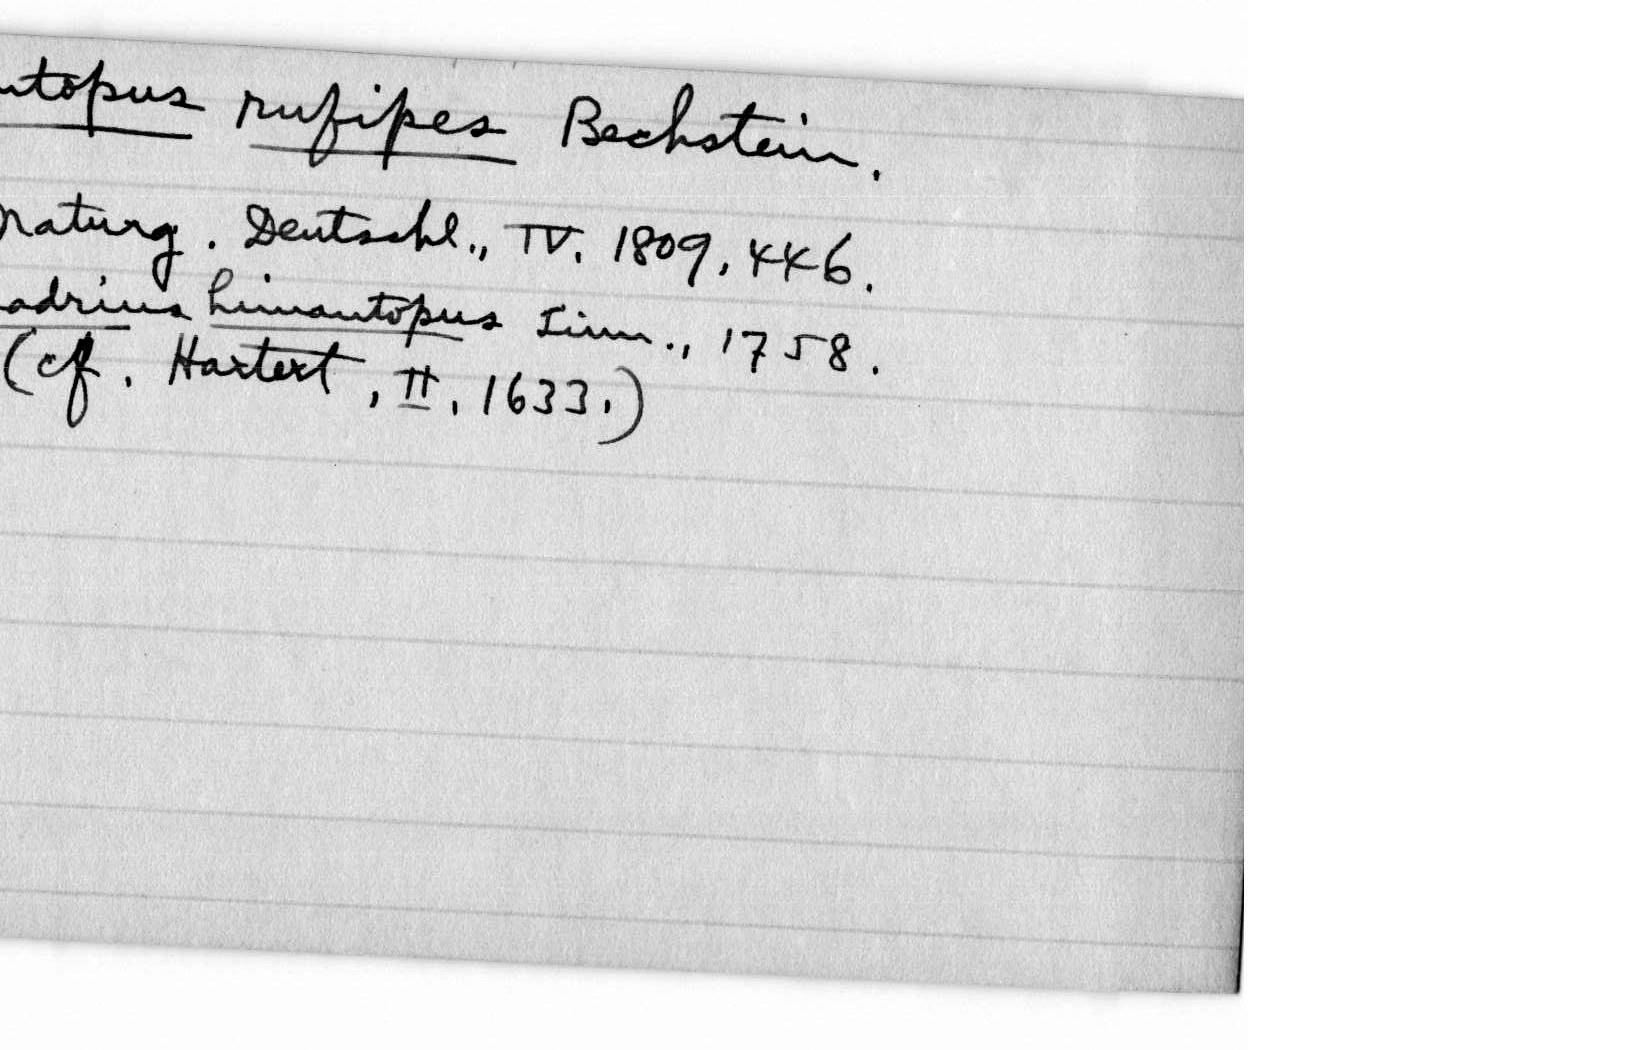 ntopus rufipes Bechstein.
Naturg. Deutschl., IV. 1809, 446.
adrius himantopus Linn., 1758.
(cf. Hartert, II, 1633.)